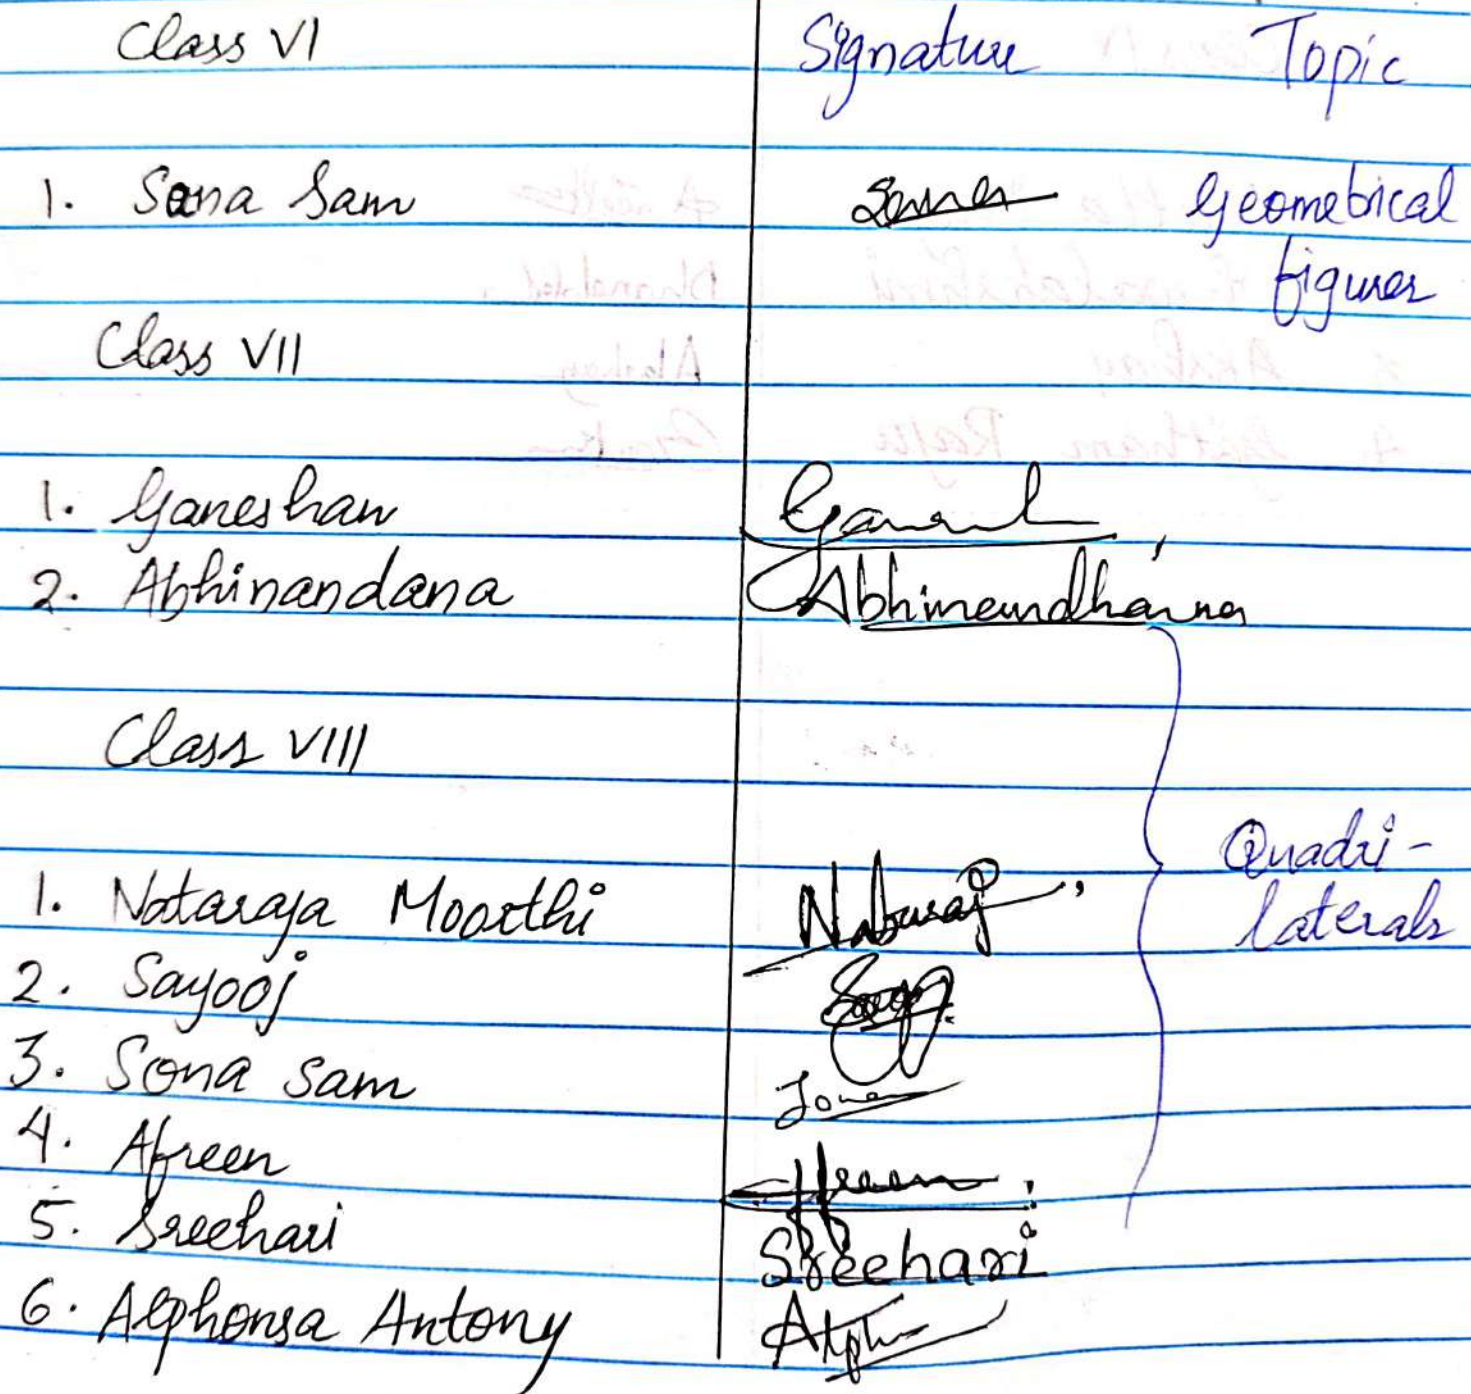 Class VI Signature Topic
1. Sana Sam Geometrical
figures
Class VII
1. Ganeshan
2. Abhinandana Abhinandhana
Class VIII
Quadri-
1. Nataraja Moorthi Nataraj laterals
2. Sayooj
3. Sona Sam Sona
4. Afreen Afreen
5. Sreehari Sreehari
6. Alphonsa Antony Alph